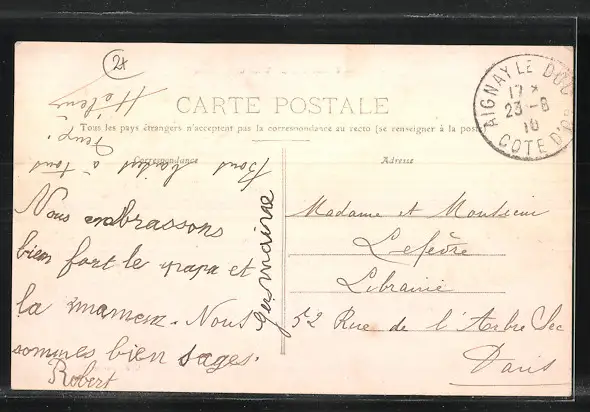 2x
CARTE POSTALE
Tous les pays étrangers n'acceptent pas la correspondance au recto (se renseigner à la poste)
Correspondance
Adresse
AIGNAY LE DUC
17 *
23 - 8
10
COTE D'OR
Bons baisers à tous
Hélène
Nous embrassons
bien fort le papa et
la maman. Nous
sommes bien sages.
Robert
germaine
Madame et Monsieur
Lefèvre
Librairie
52 Rue de l'Arbre Sec
Paris